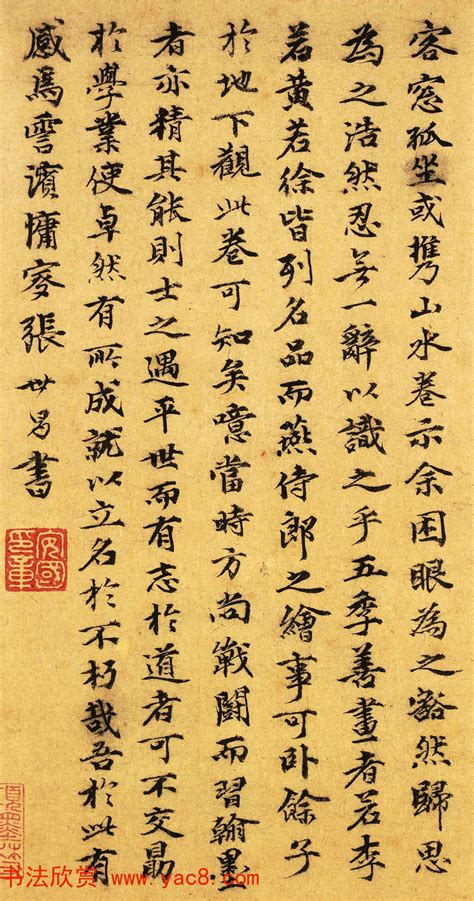 客窓孤坐或攜山水卷示余困眼為之豁然歸思
為之浩然忍無一辭以識之乎五季善畫者若李
若黃若徐皆列名品而燕侍郎之繪事可卧餘子
於地下觀此卷可知矣噫當時方尚戰鬪而習翰墨
者亦精其能則士之遇平世而有志於道者可不交勗
於學業使卓然有所成就以立名於不朽哉吾於此有
感焉雪濱慵叟張世昌書
安國
书法欣赏 www.yac8.com